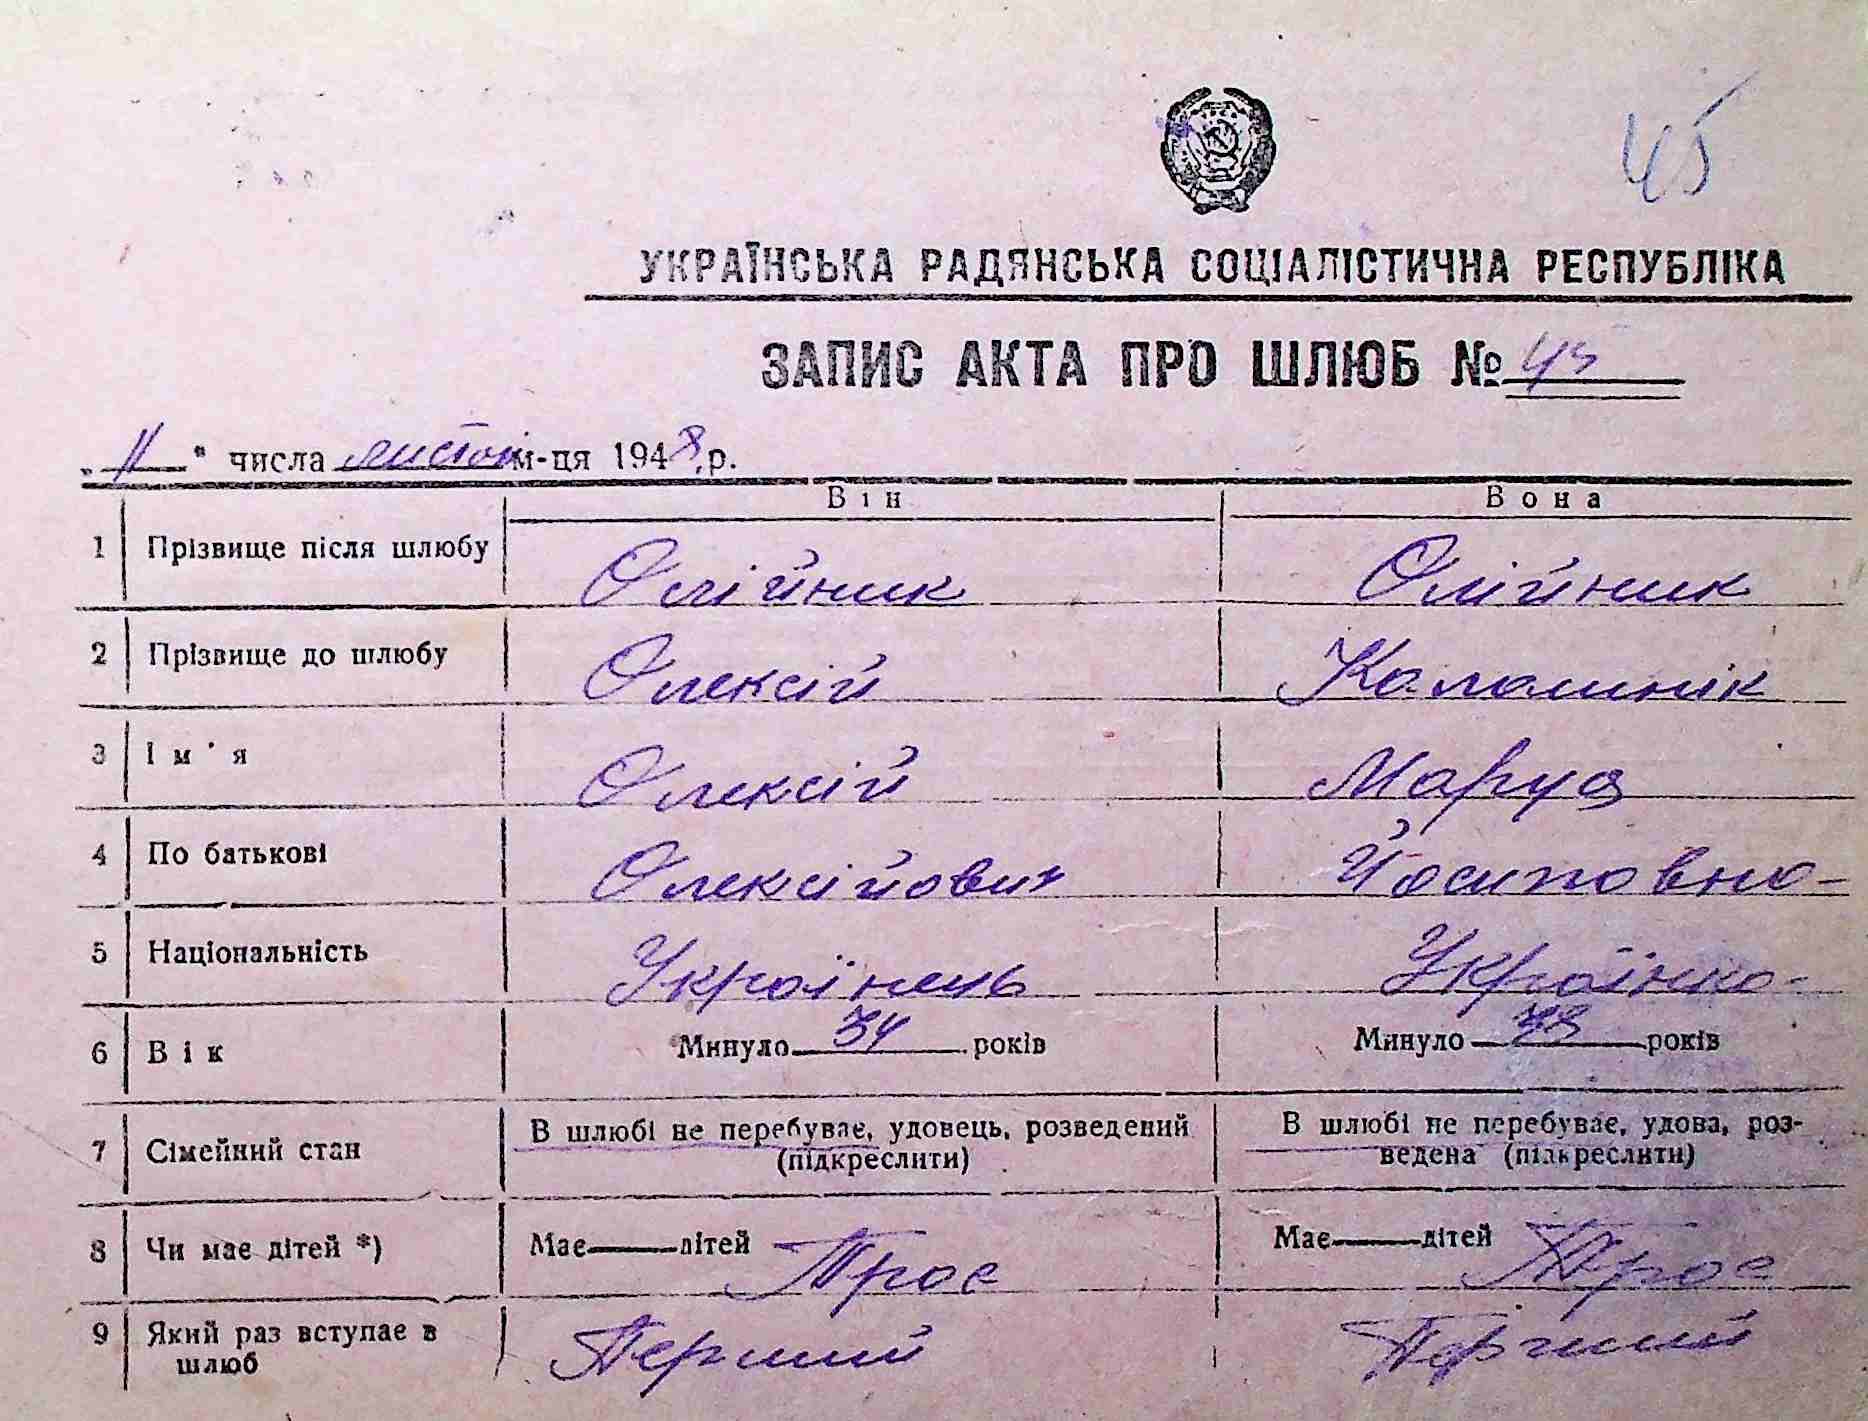 45
УКРАЇНСЬКА РАДЯНСЬКА СОЦІАЛІСТИЧНА РЕСПУБЛІКА
ЗАПИС АКТА ПРО ШЛЮБ № 45
„11" числа листоп м-ця 1948 р.
Він Вона
1 Прізвище після шлюбу Олійник Олійник
2 Прізвище до шлюбу Олексій
3 Ім'я Олексій Маруся
4 По батькові Олексійович Йосиповна
5 Національність Українець Українка
6 Вік Минуло 34 років Минуло років
7 Сімейний стан В шлюбі не перебуває, удовець, розведений (підкреслити) В шлюбі не перебуває, удова, роз-
ведена (підкреслити)
8 Чи має дітей *) Має дітей Троє Має дітей Троє
9 Який раз вступає в шлюб Перший Перший